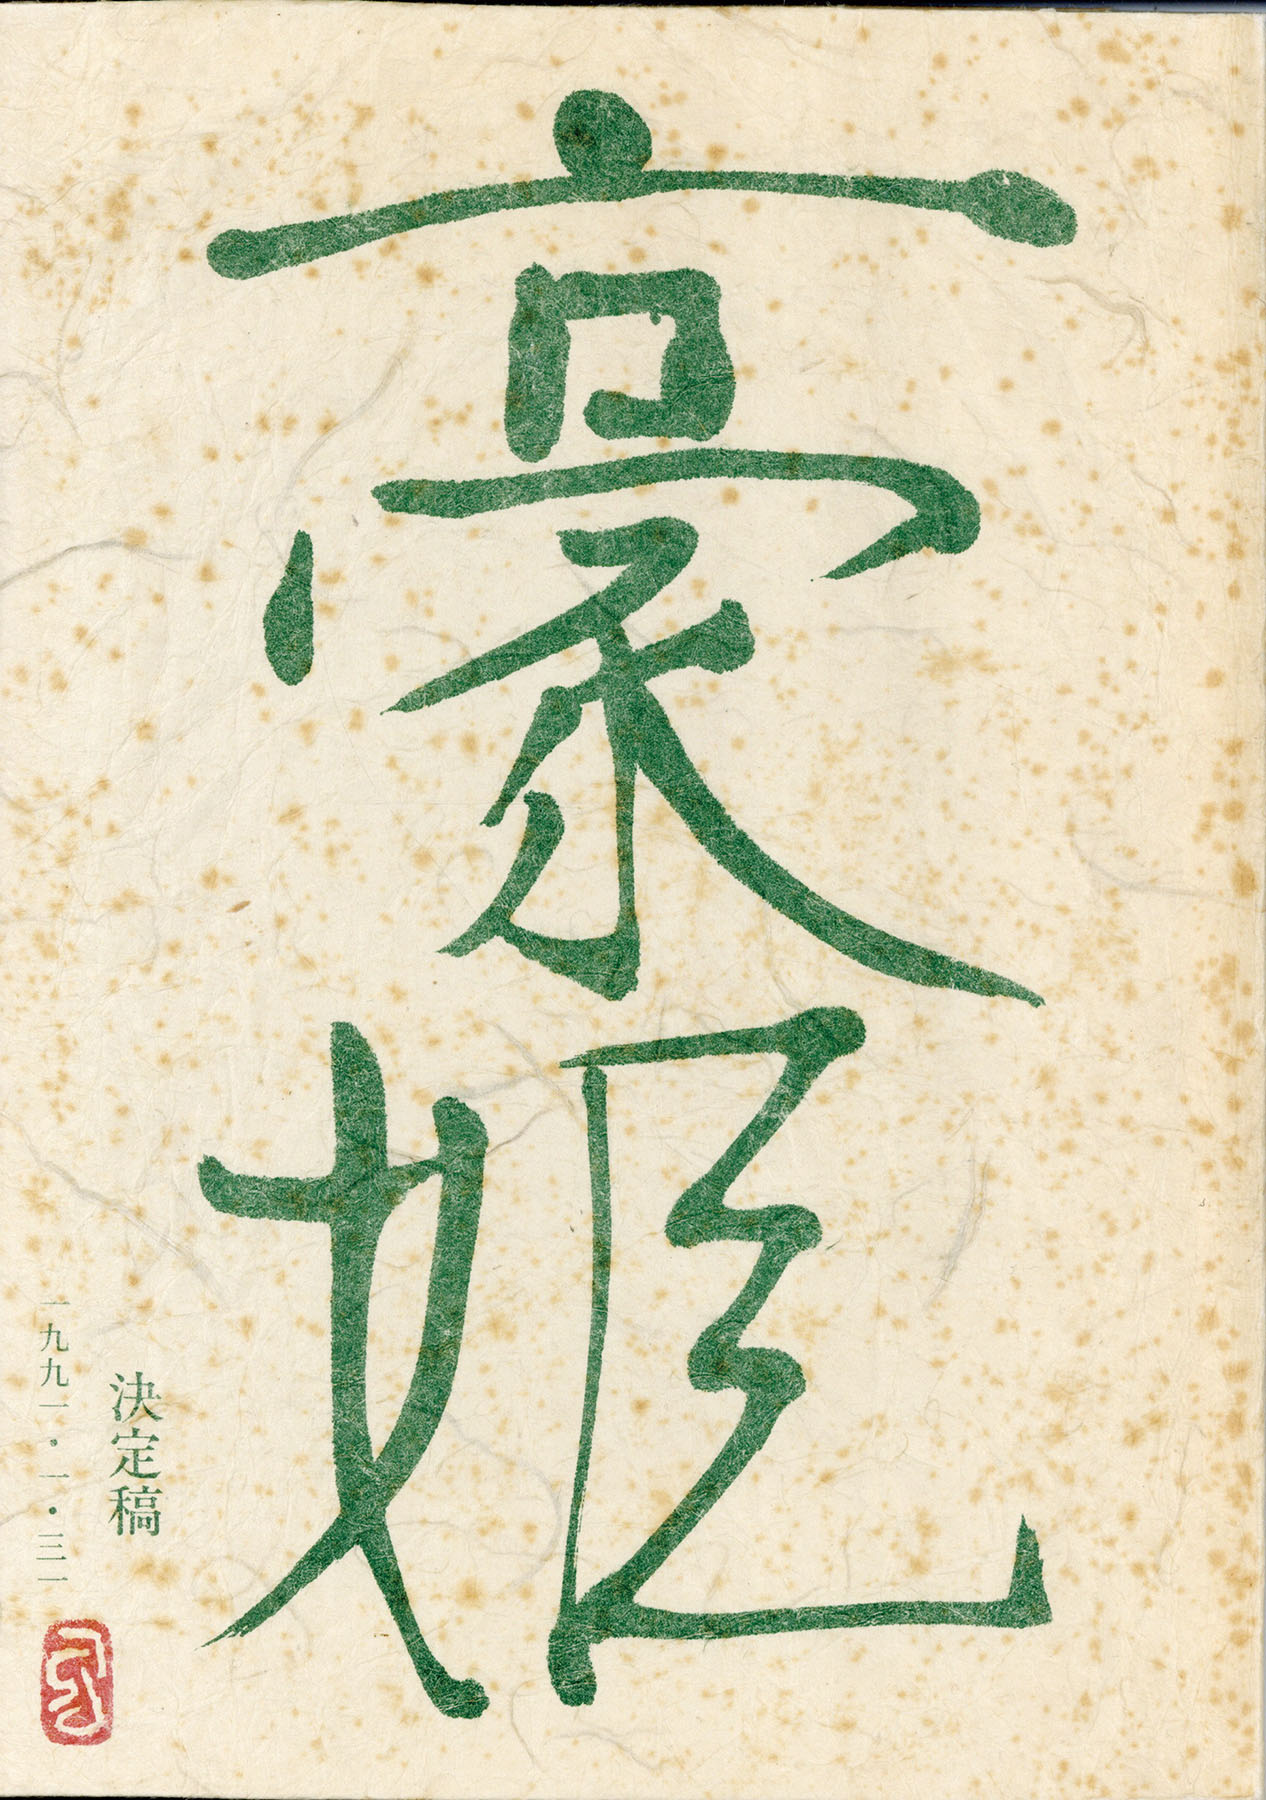 豪姫
決定稿
一九九一・一・三一